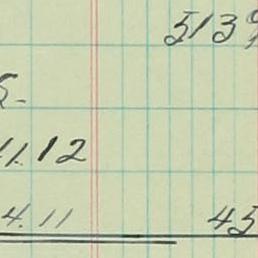 513
11.12
4.11 45